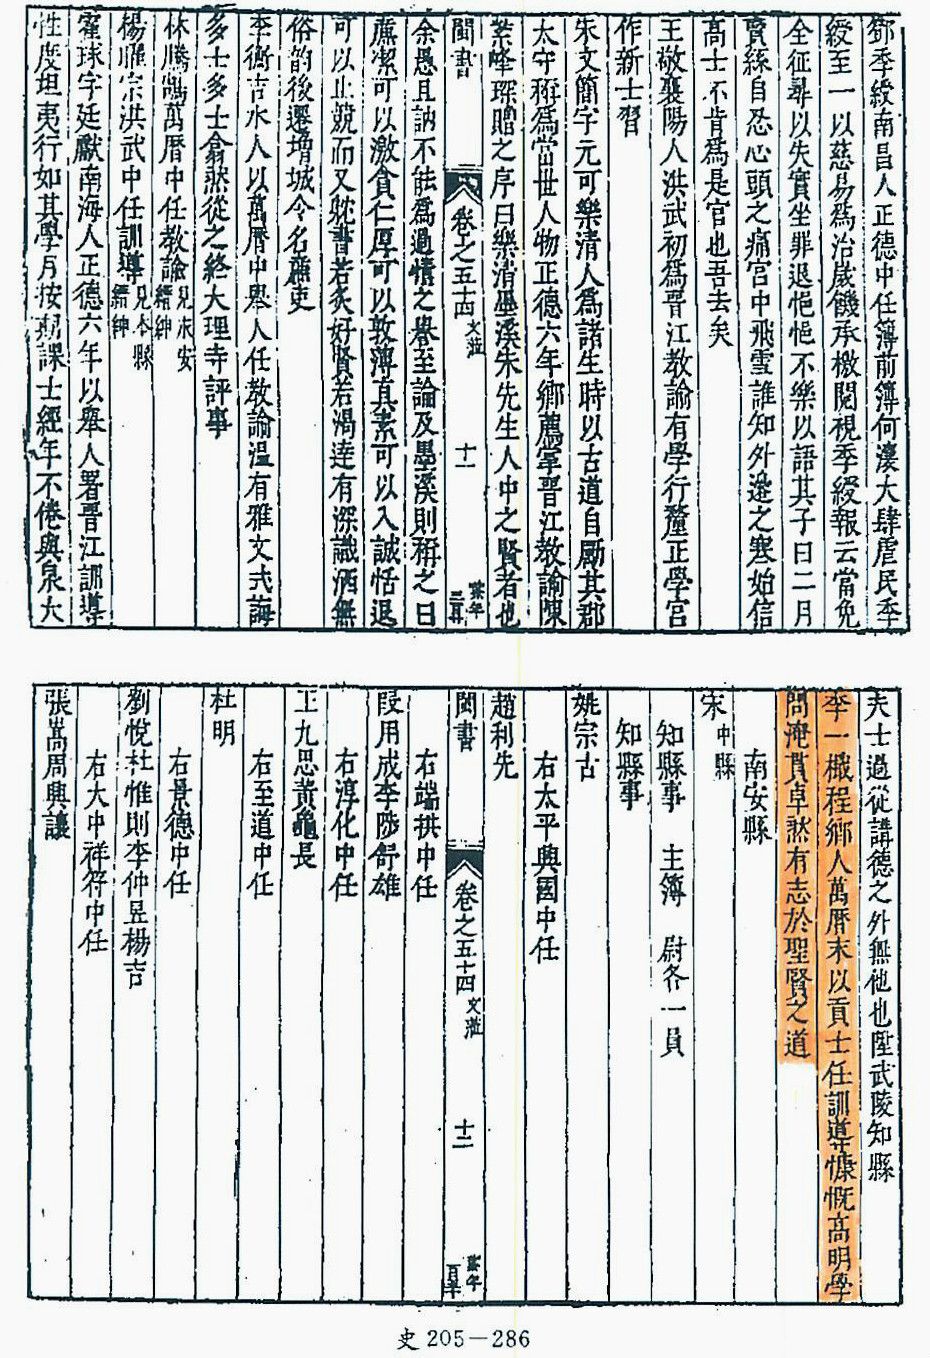 鄧季綬南昌人正德中任簿前簿何瀼大肆虐民季
綬至一以慈易爲治歲饑承檄閱視季綬報云當免
全征尋以失實坐罪退悒悒不樂以語其子曰二月
賣絲自忍心頭之痛宮中飛雪誰知外邊之寒始信
高士不肯爲是官也吾去矣
王敬襄陽人洪武初爲晋江教諭有學行釐正學宮
作新士習
朱文簡字元可樂清人爲諸生時以古道自勵其郡
太守稱爲當世人物正德六年鄉薦掌晋江教諭陳
紫峰琛贈之序曰樂清墨溪朱先生人中之賢者也
閩書
卷之五十四
文蒞
十一
崇年
三百
余愚且訥不能爲過情之譽至論及墨溪則稱之曰
廉潔可以激貪仁厚可以敦薄真素可以入誠恬退
可以止競而又躭書若炙好賢若渴達有深識洒無
俗韵後遷增城令名廉吏
李衡吉水人以萬曆中舉人任教諭溫有雅文式誨
多士多士翕然從之終大理寺評事
林騰鵾萬曆中任教諭
見永安
縉紳
楊耀宗洪武中任訓導
見本縣
縉紳
霍球字廷獻南海人正德六年以舉人署晋江訓導
性度坦夷行如其學月按期課士經年不倦與泉大
夫士過從講德之外無他也陞武陵知縣
季一檝程鄉人萬曆末以貢士任訓導慷慨高明學
問淹貫卓然有志於聖賢之道
南安縣
宋
中縣
知縣事 主簿 尉各一員
知縣事
姚宗古
右太平興國中任
趙利先
閩書
卷之五十四
文蒞
十二
崇年
右端拱中任
段用成李陟舒雄
右淳化中任
王九思黃龜長
右至道中任
杜明
右景德中任
劉悅杜惟則李仲昱楊吉
右大中祥符中任
張嵩周興讓
史 205—286